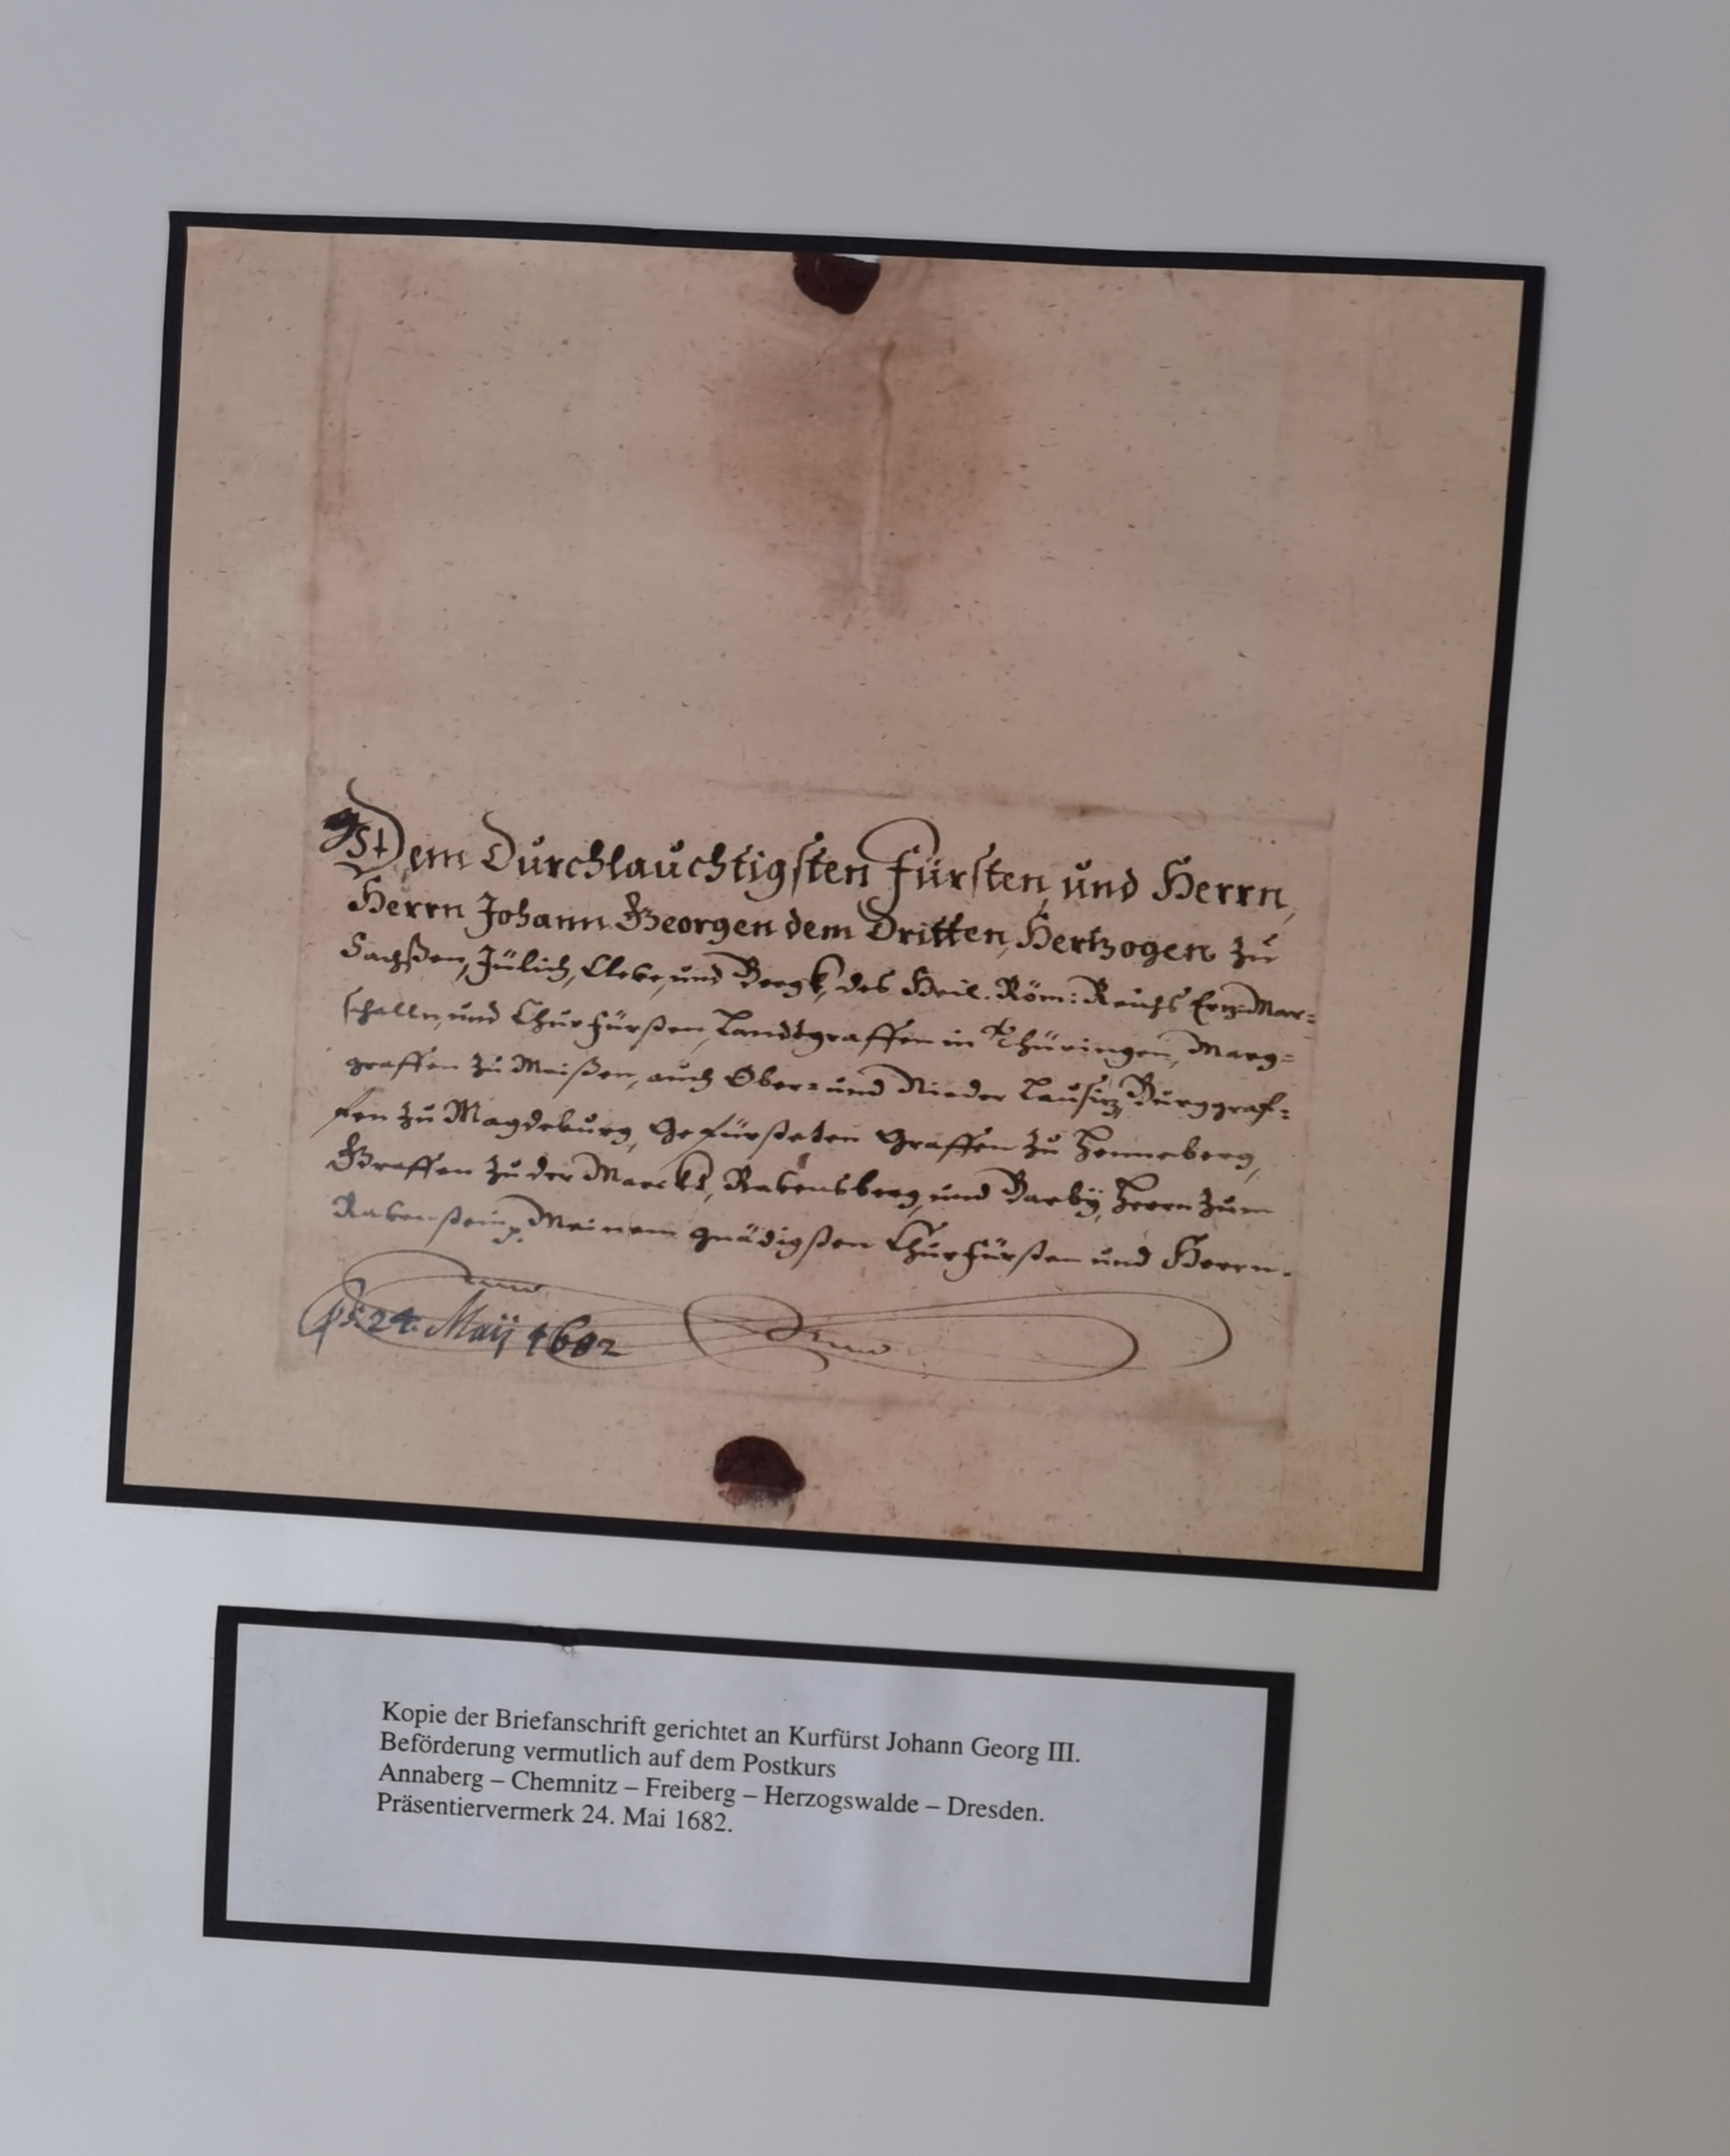 Dem Durchlauchtigsten Fürsten, und Herrn,
Herrn Johann Georgen dem Dritten, Hertzogen zu
Sachßen, Jülich, Cleve, und Bergk, des Heil. Röm: Reichs Ertz-Mar=
schalln, und Churfürsten, Landtgraffen in Thüringen, Marg=
graffen zu Meißen, auch Ober= und Nieder Lausitz, Burggraf=
fen zu Magdeburg, Gefürsteten Graffen zu Henneberg,
Graffen zu der Marck, Ravensberg, und Barbÿ, Herrn zum
Ravenstein, Meinem gnädigsten Churfürsten und Herrn.
ps. 24. Maÿ 1682
Kopie der Briefanschrift gerichtet an Kurfürst Johann Georg III.
Beförderung vermutlich auf dem Postkurs
Annaberg – Chemnitz – Freiberg – Herzogswalde – Dresden.
Präsentiervermerk 24. Mai 1682.